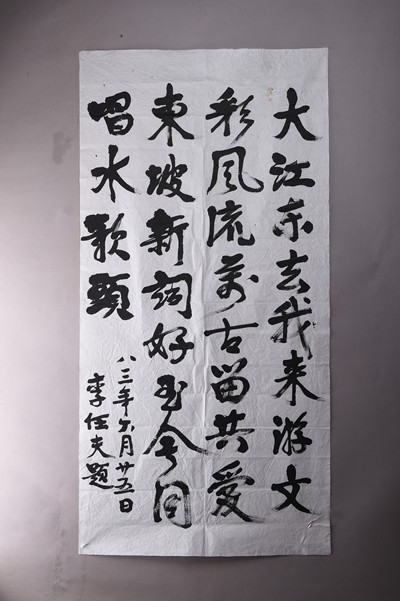 大江东去我来游文
彩风流萬古留共愛
東坡新詞好至今同
唱水歌頭
八三年六月廿五日
李任夫題